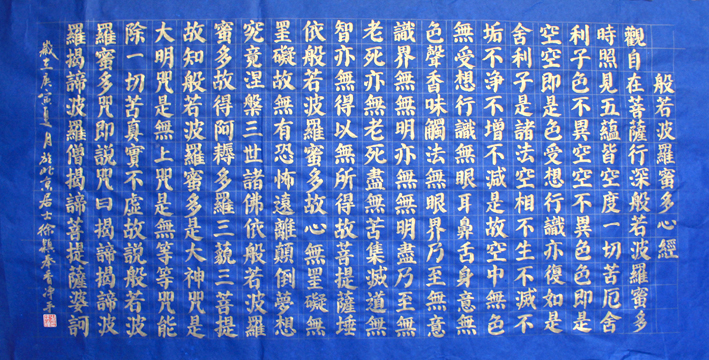 般若波羅蜜多心經
觀自在菩薩行深般若波羅蜜多
時照見五蘊皆空度一切苦厄舍
利子色不異空空不異色色即是
空空即是色受想行識亦復如是
舍利子是諸法空相不生不滅不
垢不淨不增不減是故空中無色
無受想行識無眼耳鼻舌身意無
色聲香味觸法無眼界乃至無意
識界無無明亦無無明盡乃至無
老死亦無老死盡無苦集滅道無
智亦無得以無所得故菩提薩埵
依般若波羅蜜多故心無罣礙無
罣礙故無有恐怖遠離顛倒夢想
究竟涅槃三世諸佛依般若波羅
蜜多故得阿耨多羅三藐三菩提
故知般若波羅蜜多是大神咒是
大明咒是無上咒是無等等咒能
除一切苦真實不虛故說般若波
羅蜜多咒即說咒曰揭諦揭諦波
羅揭諦波羅僧揭諦菩提薩婆訶
庚寅夏月於北京居士徐